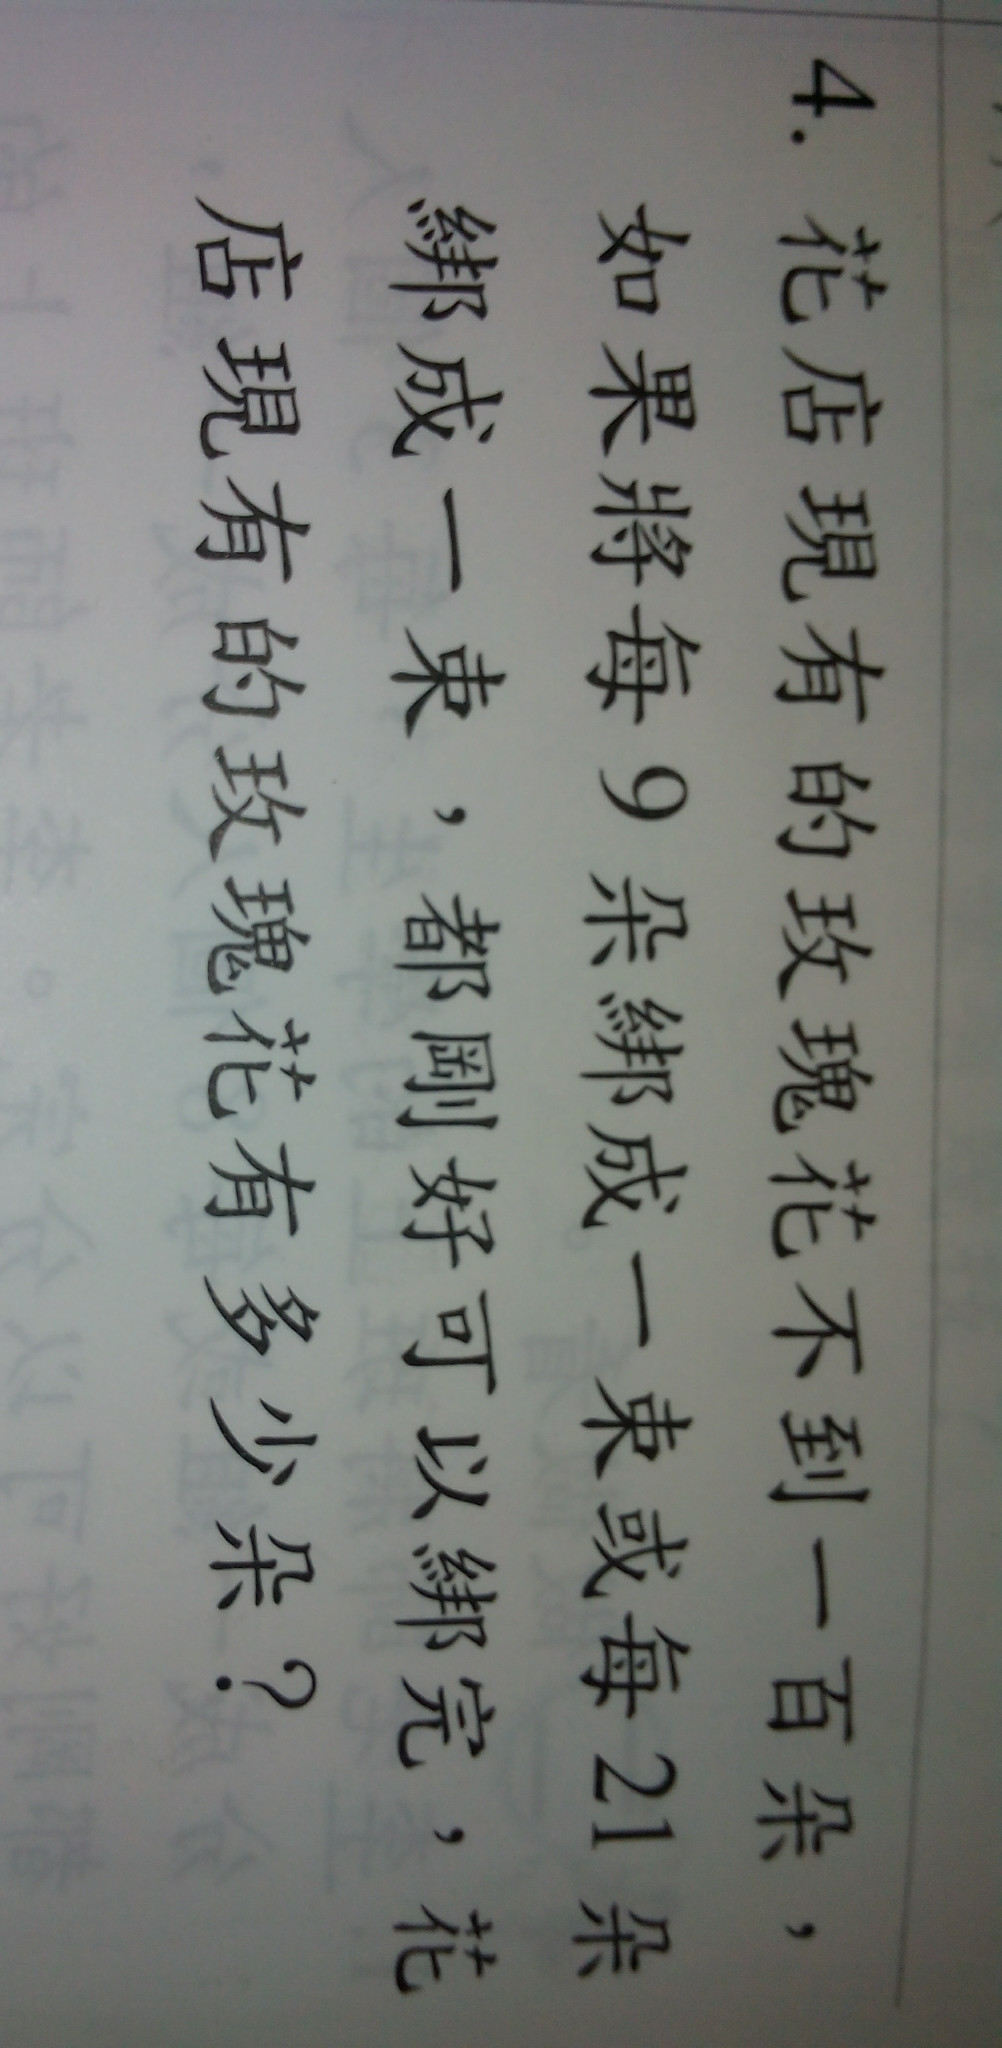 4. 花店現有的玫瑰花不到一百朵，
如果將每9朵綁成一束或每21朵
綁成一束，都剛好可以綁完，花
店現有的玫瑰花有多少朵？